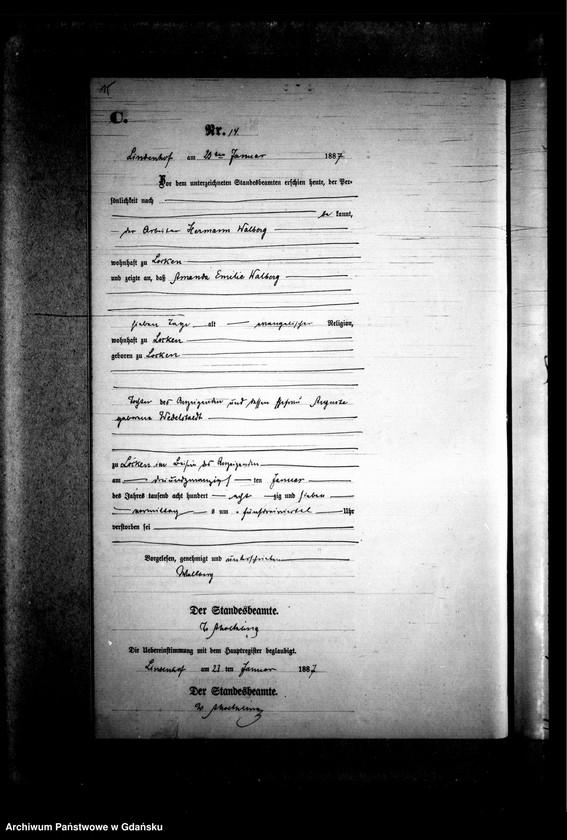 15
C.
Nr. 14
Lindenhof am 23 ten Januar 1887
Vor dem unterzeichneten Standesbeamten erschien heute, der Per-
sönlichkeit nach
be kannt,
der Arbeiter Hermann Walberg
wohnhaft zu Locken
und zeigte an, daß Amanda Emilie Walberg
sieben Tage alt evangelischer Religion,
wohnhaft zu Locken
geboren zu Locken
Tochter des Anzeigenden und dessen Ehefrau Auguste
geborene Wedelstaedt
zu Locken im Beisein des Anzeigenden
am dreiundzwanzigs ten Januar
des Jahres tausend acht hundert acht zig und sieben
vormittag s um Uhr
verstorben sei
Vorgelesen, genehmigt und unterschrieben
Wallberg
Der Standesbeamte.
Die Uebereinstimmung mit dem Hauptregister beglaubigt.
Lindenhof am 23 ten Januar 1887
Der Standesbeamte.
Archiwum Państwowe w Gdańsku